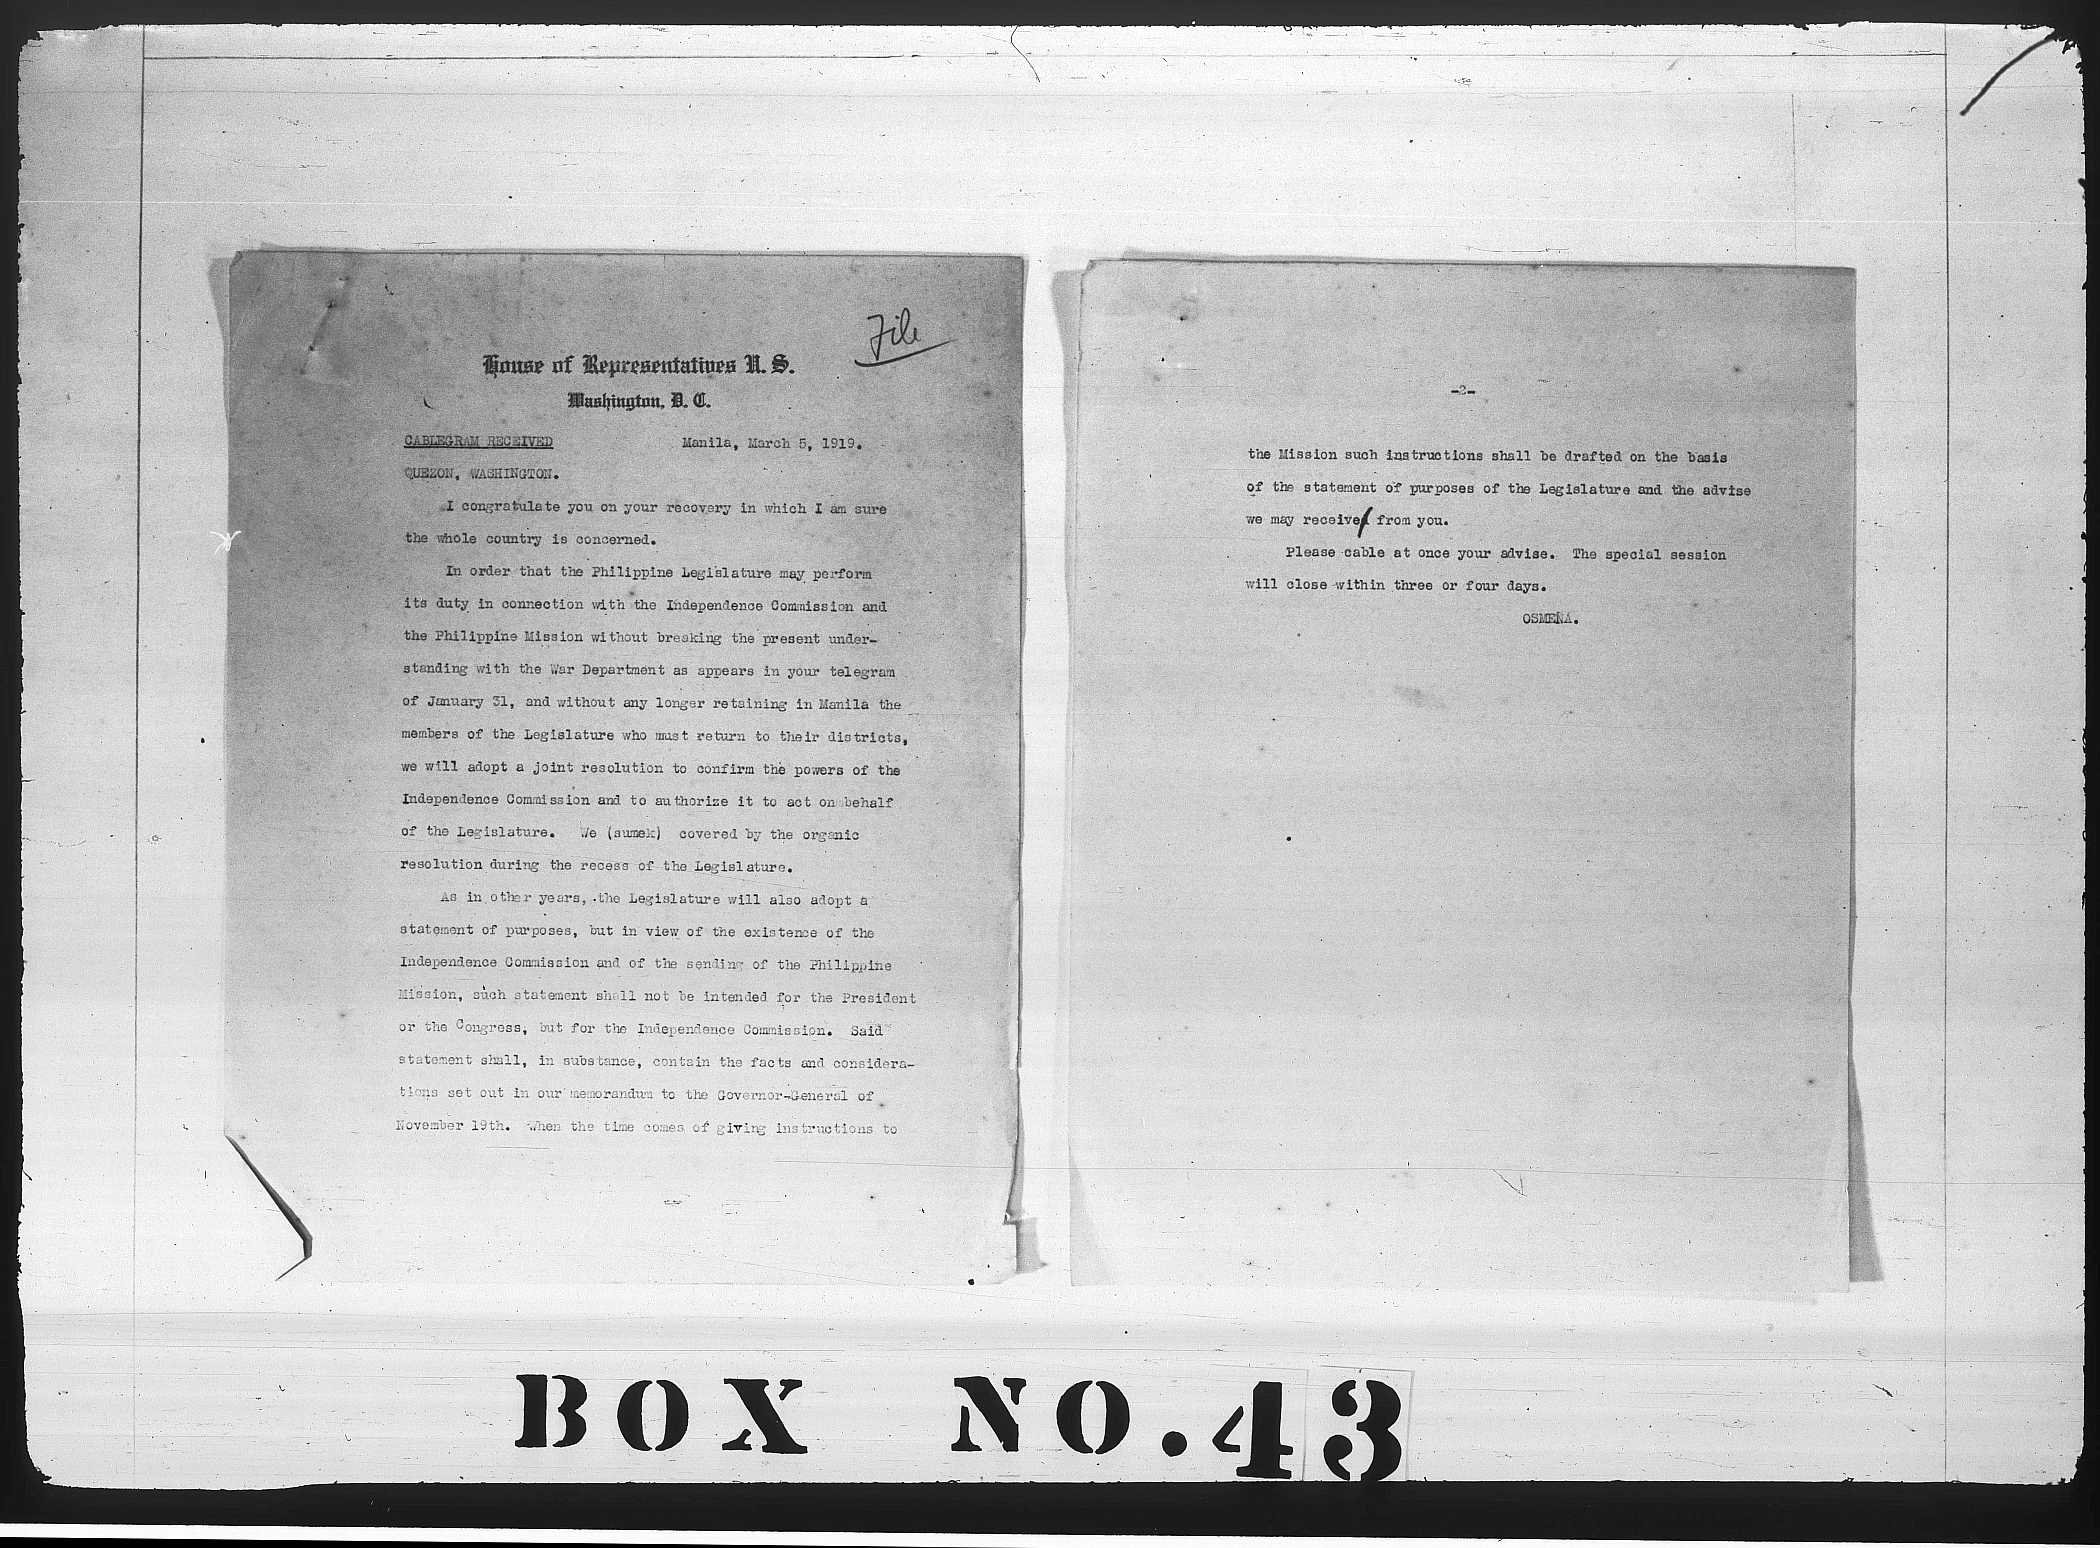 File
House of Representatives U. S.
Washington, D. C.
CABLEGRAM RECEIVED Manila, March 5, 1919.
QUEZON, WASHINGTON.
I congratulate you on your recovery in which I am sure
the whole country is concerned.
In order that the Philippine Legislature may perform
its duty in connection with the Independence Commission and
the Philippine Mission without breaking the present under-
standing with the War Department as appears in your telegram
of January 31, and without any longer retaining in Manila the
members of the Legislature who must return to their districts,
we will adopt a joint resolution to confirm the powers of the
Independence Commission and to authorize it to act on behalf
of the Legislature. We (sumek) covered by the organic
resolution during the recess of the Legislature.
As in other years, the Legislature will also adopt a
statement of purposes, but in view of the existence of the
Independence Commission and of the sending of the Philippine
Mission, such statement shall not be intended for the President
or the Congress, but for the Independence Commission. Said
statement shall, in substance, contain the facts and considera-
tions set out in our memorandum to the Governor-General of
November 19th. When the time comes of giving instructions to
-2-
the Mission such instructions shall be drafted on the basis
of the statement of purposes of the Legislature and the advise
we may receive from you.
Please cable at once your advise. The special session
will close within three or four days.
OSMEÑA.
BOX NO. 43